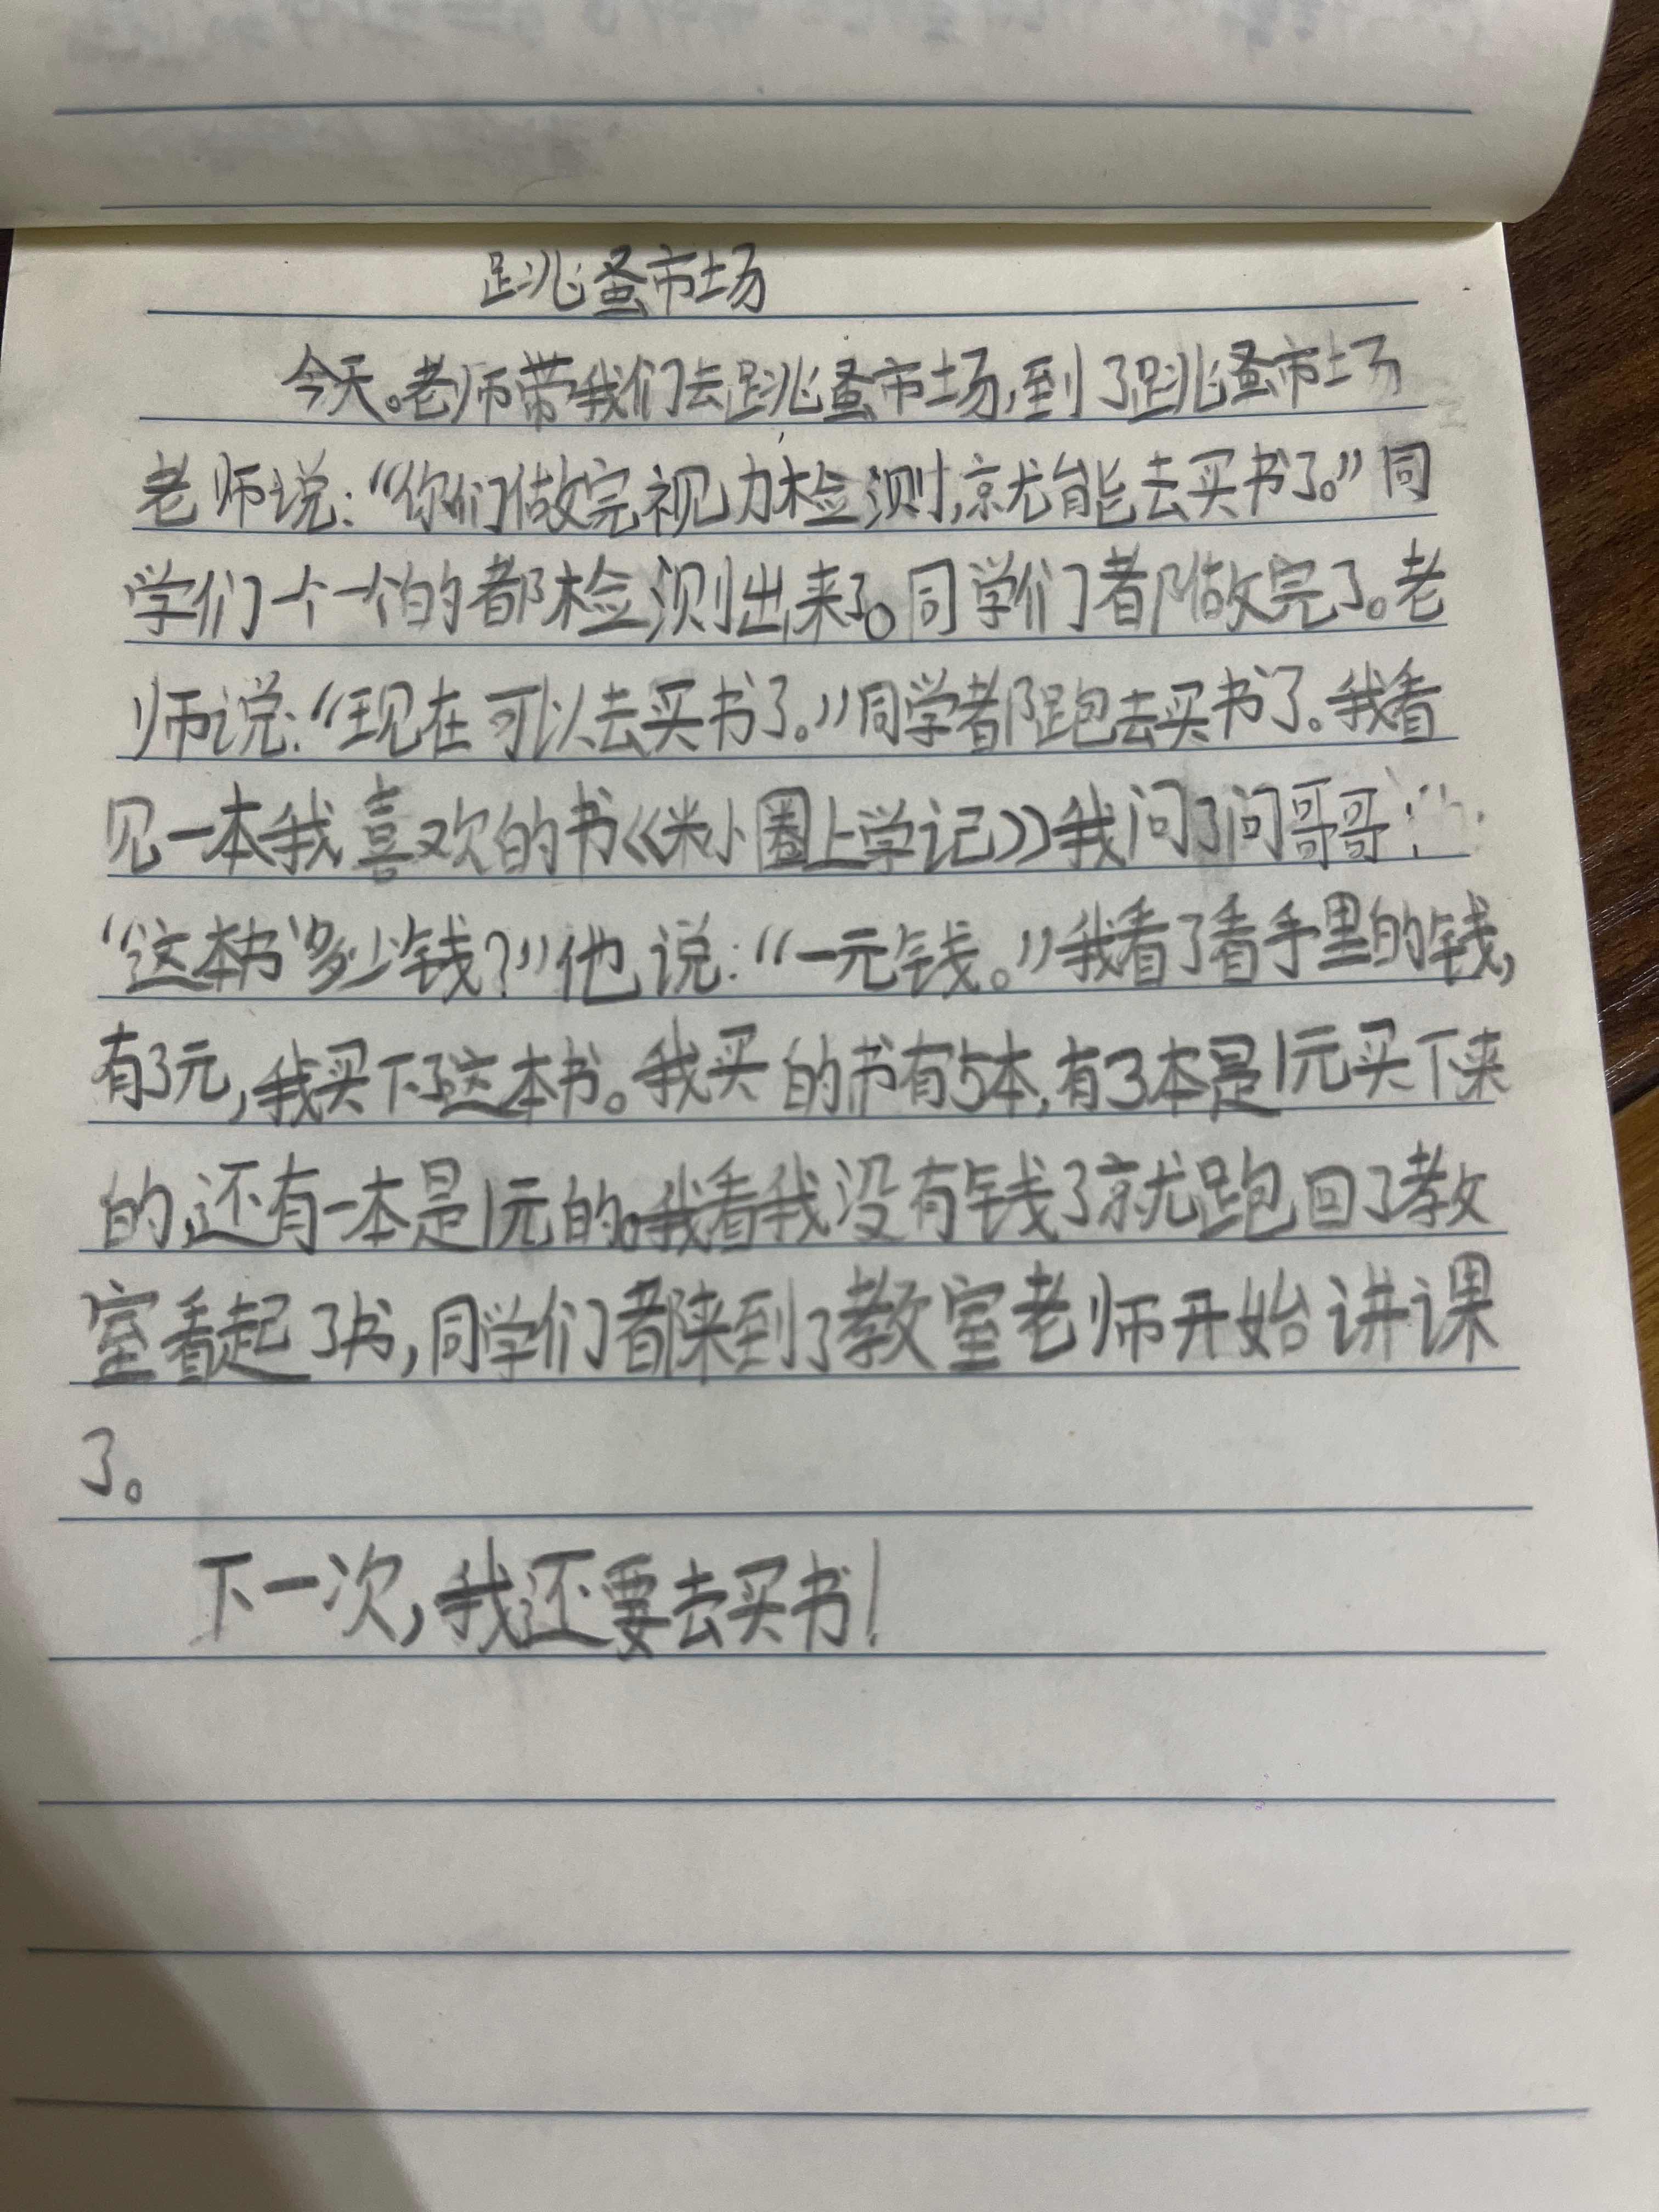 跳蚤市场
今天。老师带我们去跳蚤市场,到了跳蚤市场
老师说:“你们做完视力检测,就能去买书了。”同
学们一个一个的都检测出来了。同学们都做完了。老
师说:“现在可以去买书了。”同学都跑去买书了。我看
见一本我喜欢的书《米小圈上学记》我问了问哥哥:
“这本书多少钱?”他说:“一元钱。”我看了看手里的钱,
有3元,我买下了这本书。我买的书有5本,有3本是1元买下来
的,还有一本是1元的。我看我没有钱了就跑回了教
室看起了书,同学们都来到了教室老师开始讲课
了。
下一次,我还要去买书!